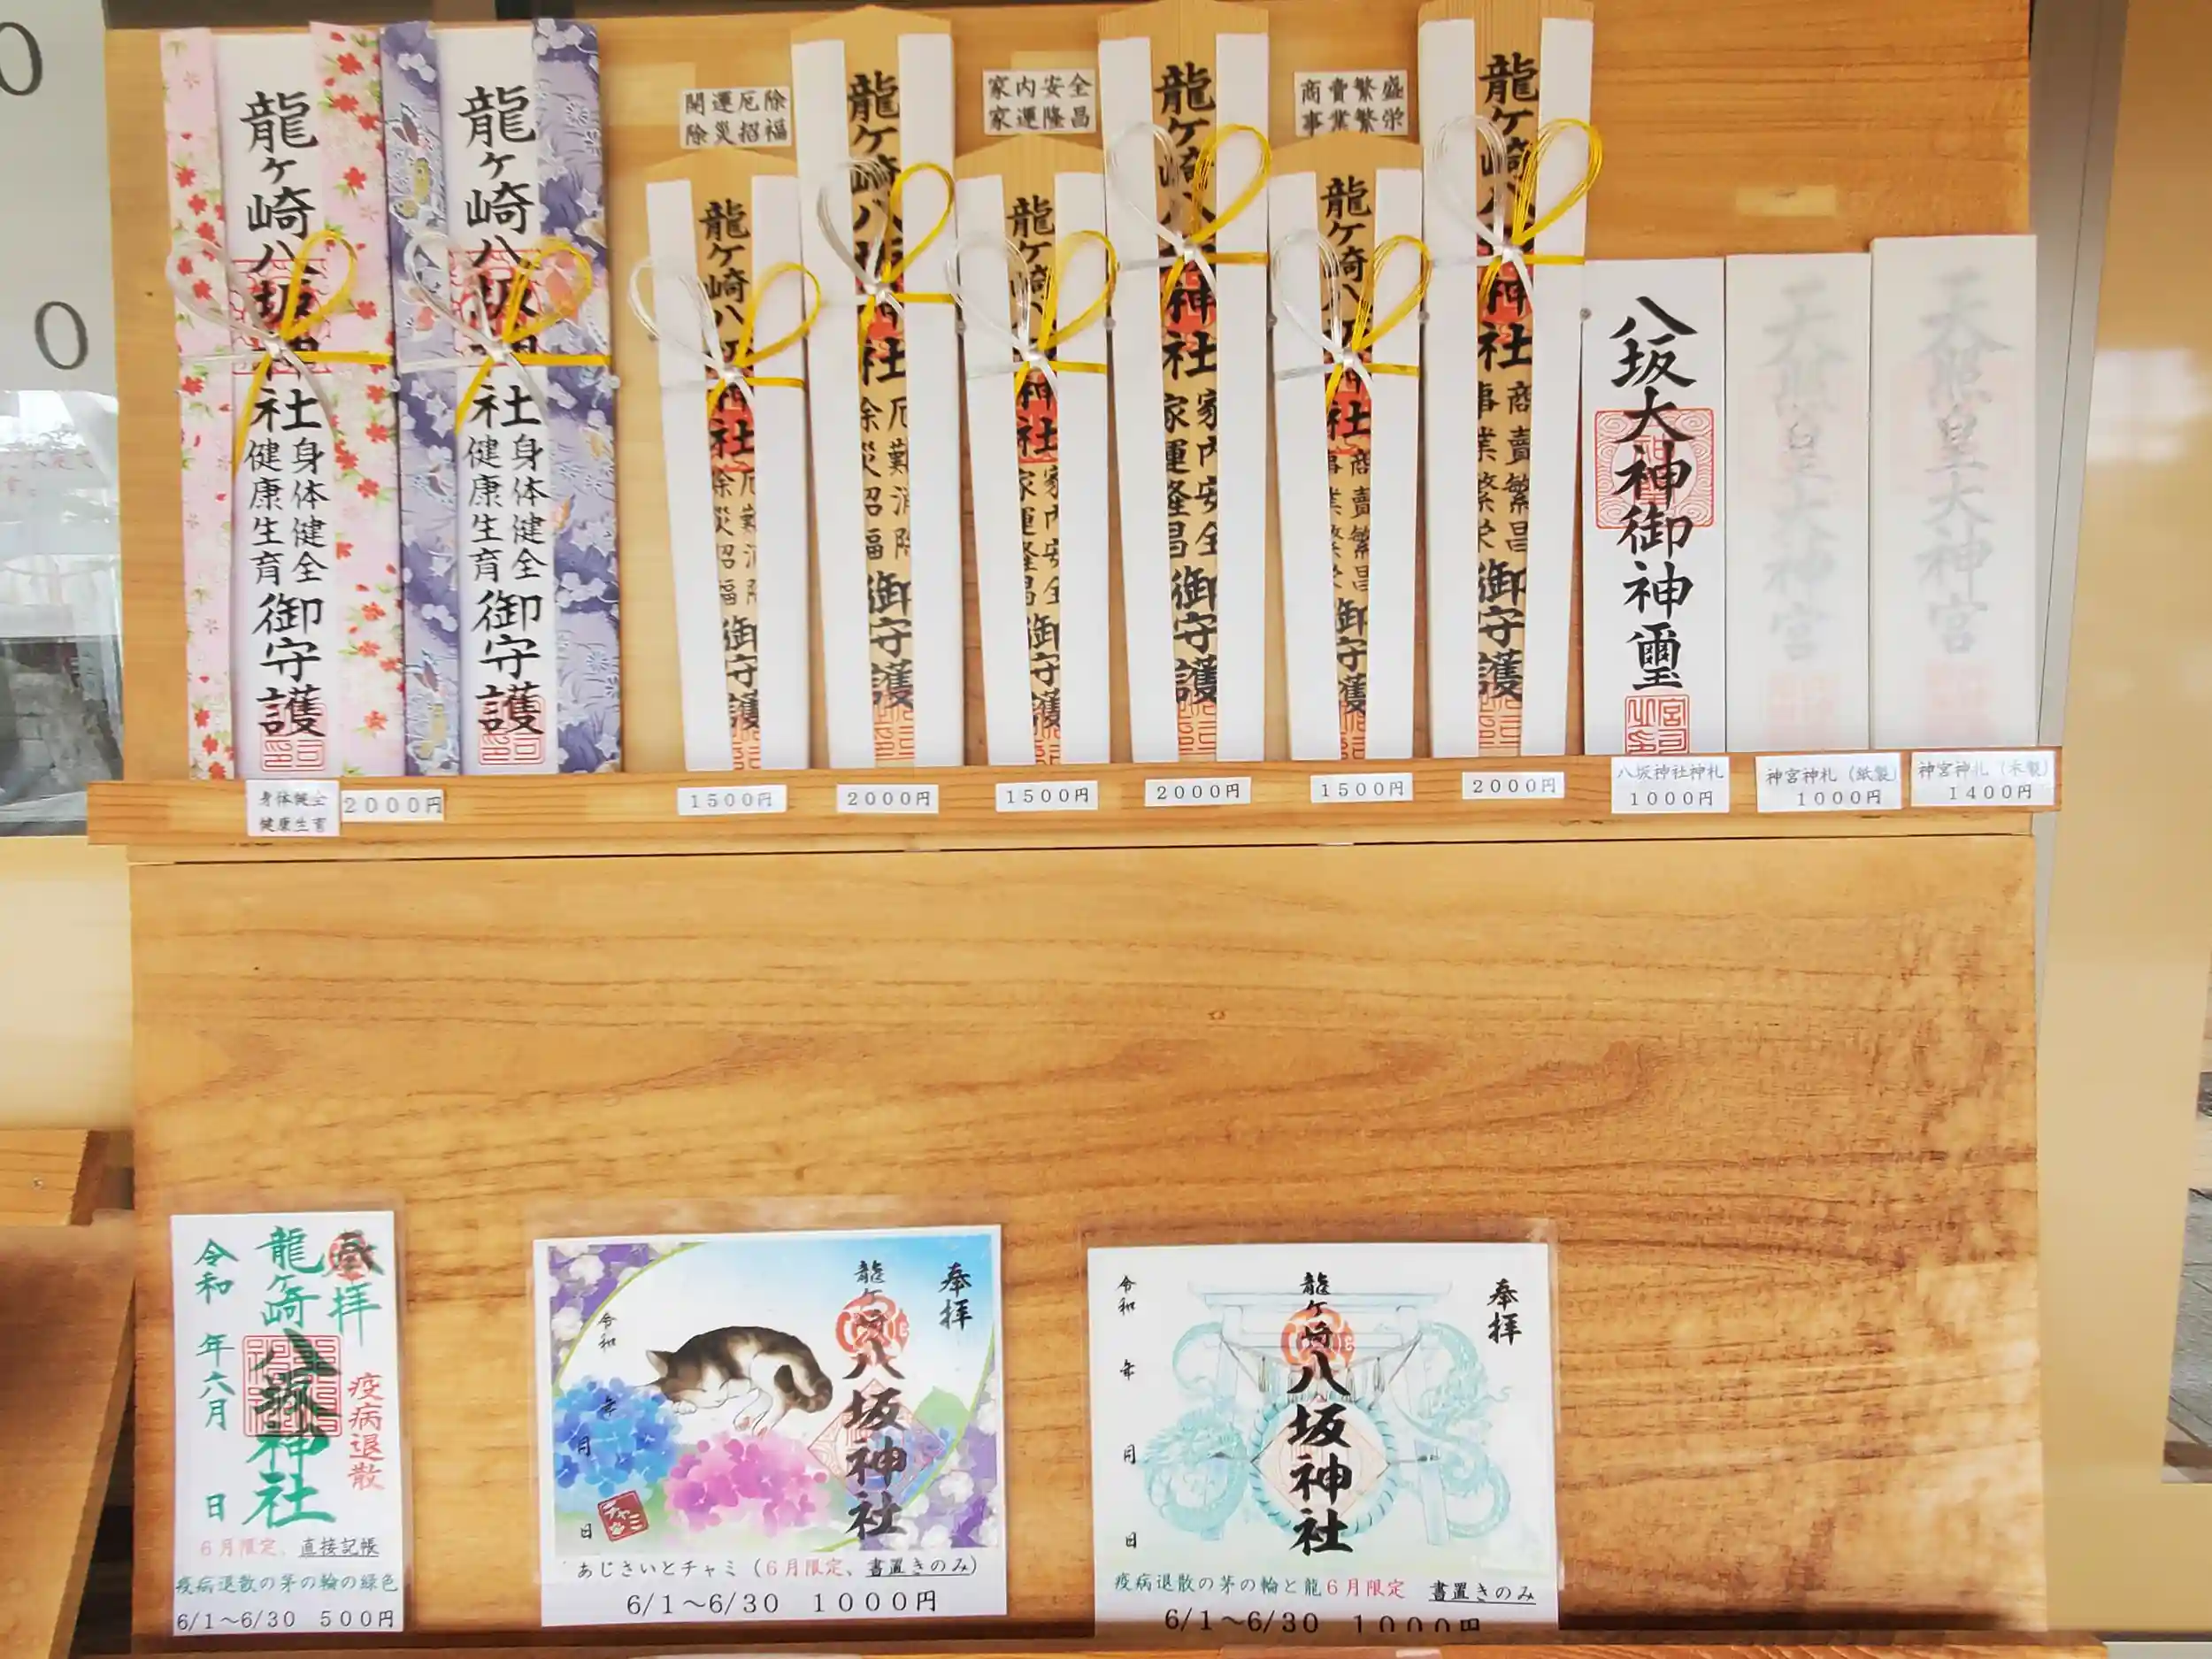 龍ヶ崎八坂神社
身体健全
健康生育
御守護
龍ヶ崎八坂神社
身体健全
健康生育
御守護
開運厄除
除災招福
龍ヶ崎八坂神社
厄難消除
除災招福
御守護
龍ヶ崎八坂神社
厄難消除
除災招福
御守護
家内安全
家運隆昌
龍ヶ崎八坂神社
家内安全
家運隆昌
御守護
龍ヶ崎八坂神社
家内安全
家運隆昌
御守護
商賣繁盛
事業繁栄
龍ヶ崎八坂神社
商賣繁昌
事業繁栄
御守護
龍ヶ崎八坂神社
商賣繁昌
事業繁栄
御守護
八坂大神御神璽
皇大神宮
皇大神宮
身体健全
健康生育
2000円
1500円
2000円
1500円
2000円
1500円
2000円
八坂神社神札
1000円
神宮神札(紙製)
1000円
神宮神札(木製)
1400円
奉拝
疫病退散
龍ヶ崎八坂神社
令和 年六月 日
6月限定、直接記帳
疫病退散の茅の輪の緑色
6/1～6/30 500円
奉拝
龍ヶ崎八坂神社
令和 年 月 日
チャミ
あじさいとチャミ(6月限定、書置きのみ)
6/1～6/30 1000円
奉拝
龍ヶ崎八坂神社
令和 年 月 日
疫病退散の茅の輪と龍6月限定 書置きのみ
6/1～6/30 1000円